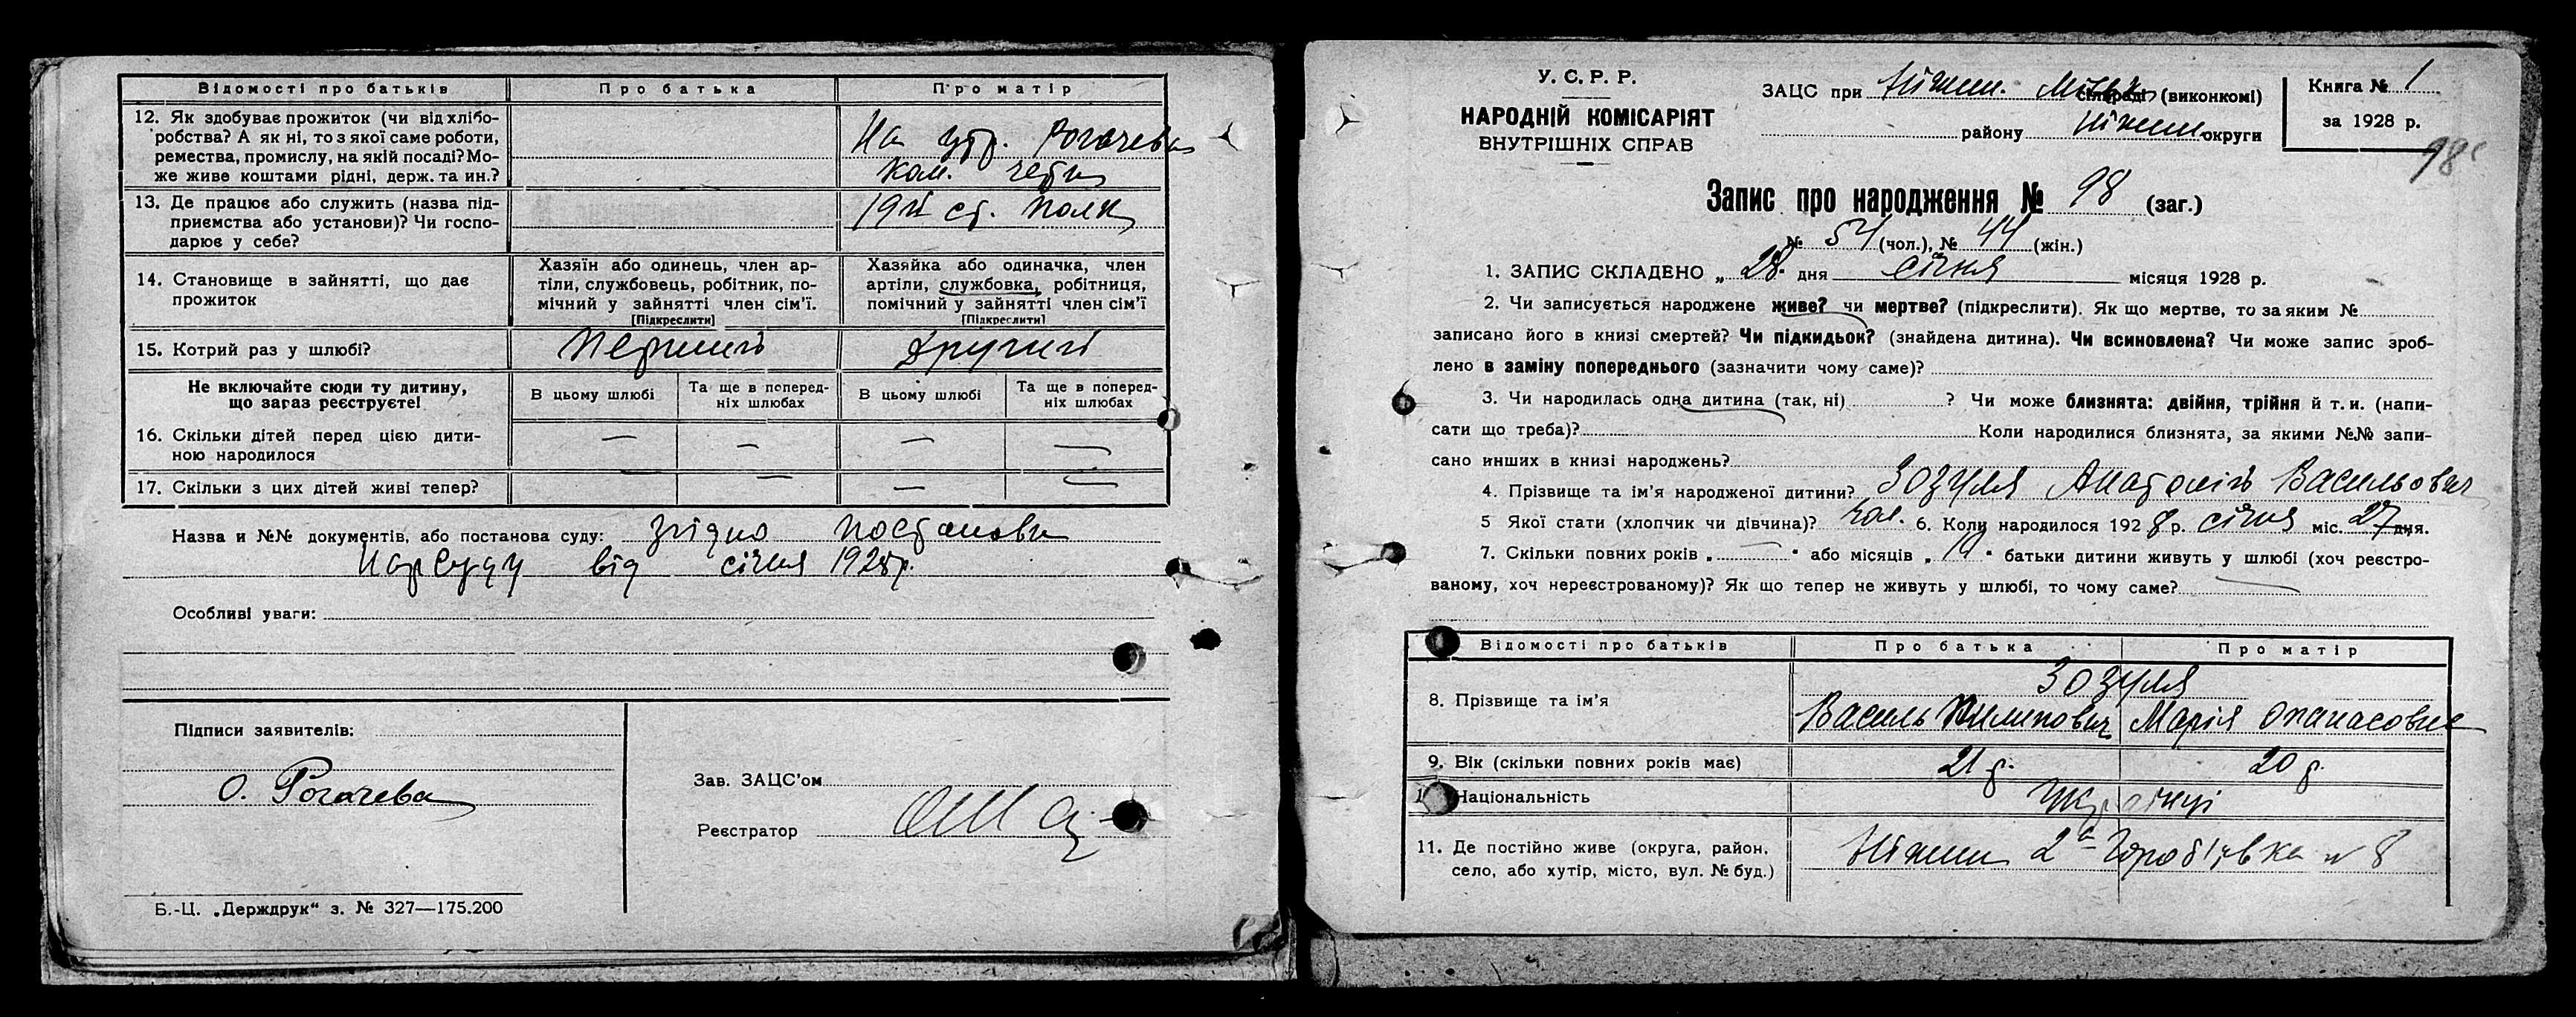 Відомості про батьків Про батька Про матір
12. Як здобуває прожиток (чи від хлібо-
робства? А як ні, то з якої саме роботи,
ремества, промислу, на якій посаді? Мо-
же живе коштами рідні, держ. та ин.?
На утр. Рогачева
ком.
13. Де працює або служить (назва під-
приємства або установи)? Чи госпо-
дарює у себе?
19й ст. полк
14. Становище в зайнятті, що дає
прожиток
Хазяїн або одинець, член ар-
тіли, службовець, робітник, по-
мічний у зайнятті член сім'ї.
[Підкреслити]
Хазяйка або одиначка, член
артіли, службовка, робітниця,
помічний у зайнятті член сім'ї
[Підкреслити]
15. Котрий раз у шлюбі? Перший Другий
Не включайте сюди ту дитину,
що зараз реєструєте!
В цьому шлюбі
Та ще в поперед-
ніх шлюбах
В цьому шлюбі
Та ще в поперед-
ніх шлюбах
16. Скільки дітей перед цією дити-
ною народилося
— — — —
17. Скільки з цих дітей живі тепер? — — — —
Назва и №№ документів, або постанова суду: згідно постанови
Нарсуду від січня 1928р.
Особливі уваги:
Підписи заявителів:
О. Рогачева
Зав. ЗАЦС'ом
Реєстратор
Б.-Ц. „Держдрук“ з. № 327—175.200
У. С. Р. Р.
НАРОДНІЙ КОМІСАРІЯТ
ВНУТРІШНІХ СПРАВ
ЗАЦС при Ніжин. Міськ сільраді (виконкомі)
району Ніжин округи
Книга № 1
за 1928 р.
98
Запис про народження № 98 (заг.)
№ 54 (чол.), № 44 (жін.)
1. ЗАПИС СКЛАДЕНО „ 28. дня січня місяця 1928 р.
2. Чи записується народжене живе? чи мертве? (підкреслити). Як що мертве, то за яким №
записано його в книзі смертей? Чи підкидьок? (знайдена дитина). Чи всиновлена? Чи може запис зроб-
лено в заміну попереднього (зазначити чому саме)?
3. Чи народилась одна дитина (так, ні) ? Чи може близнята: двійня, трійня й т. и. (напи-
сати що треба)? Коли народилися близнята, за якими №№ запи-
сано инших в книзі народжень?
4. Прізвище та ім'я народженої дитини? Зозуля Анатолій Васильович
5 Якої стати (хлопчик чи дівчина)? чол. 6. Коли народилося 1928 р. січня міс. 27 дня.
7. Скільки повних років „ — “ або місяців „ 10 “ батьки дитини живуть у шлюбі (хоч реєстро-
ваному, хоч нереєстрованому)? Як що тепер не живуть у шлюбі, то чому саме? —
Відомості про батьків Про батька Про матір
8. Прізвище та ім'я
Зозуля
Василь Пилипович Марія Опанасовна
9. Вік (скільки повних років має) 21 р. 20 р.
Національність Українці
11. Де постійно живе (округа, район,
село, або хутір, місто, вул. № буд.)
Ніжин 2а Горобіївка № 8